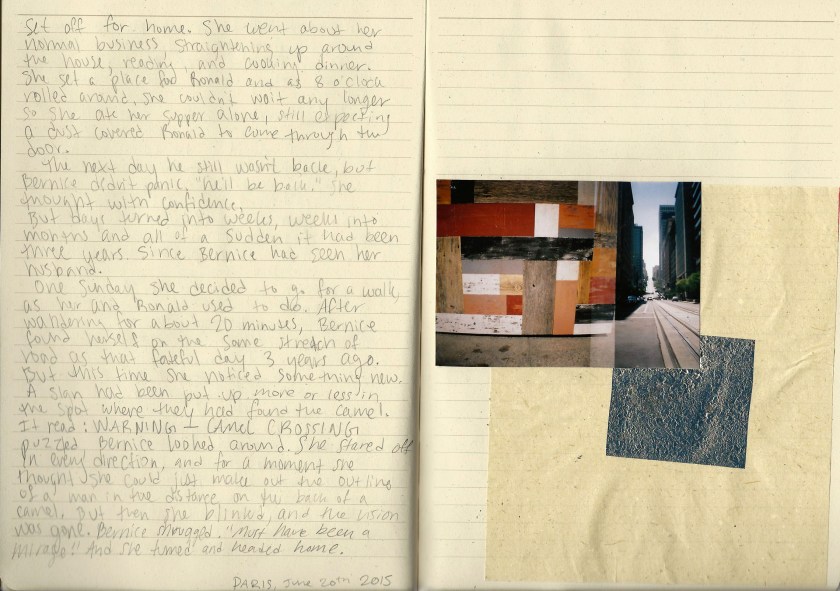 set off for home. She went about her
normal business, straightening up around
the house, reading, and cooking dinner.
She set a place for Ronald and as 8 o'clock
rolled around, she couldn't wait any longer
so she ate her supper alone, still expecting
a dust covered Ronald to come through the
door.
The next day he still wasn't back, but
Bernice didn't panic, "he'll be back." she
thought with confidence.
But days turned into weeks, weeks into
months and all of a sudden it had been
three years since Bernice had seen her
husband.
One Sunday she decided to go for a walk,
as her and Ronald used to do. After
wandering for about 20 minutes, Bernice
found herself on the same stretch of
road as that fateful day 3 years ago.
But this time she noticed something new.
A sign had been put up more or less in
the spot where they had found the camel.
It read: WARNING - CAMEL CROSSING
puzzled, Bernice looked around. She stared off
in every direction, and for a moment she
thought she could just make out the outline
of a man in the distance on the back of a
camel. But then she blinked, and the vision
was gone. Bernice shrugged. "Must have been a
mirage!" And she turned and headed home.
PARIS, June 20th 2015